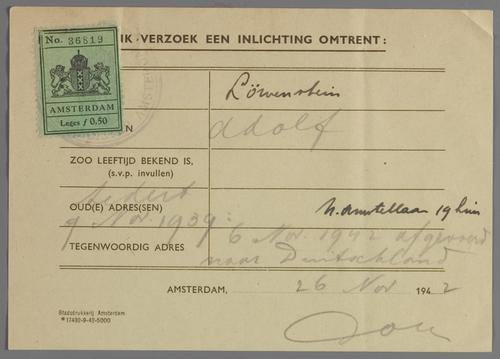 No. 36819
AMSTERDAM
Leges ƒ 0,50
IK VERZOEK EEN INLICHTING OMTRENT:
Löwenstein
Adolf
ZOO LEEFTIJD BEKEND IS,
(s.v.p. invullen)
OUD(E) ADRES(SEN)
N. Amstellaan 19 huis
sedert
9 Nov. 1939:
TEGENWOORDIG ADRES
6 Nov. 1942 afgevoerd
naar Duitschland
AMSTERDAM, 26 Nov 1942
Stadsdrukkerij Amsterdam
*17430-9-42-5000